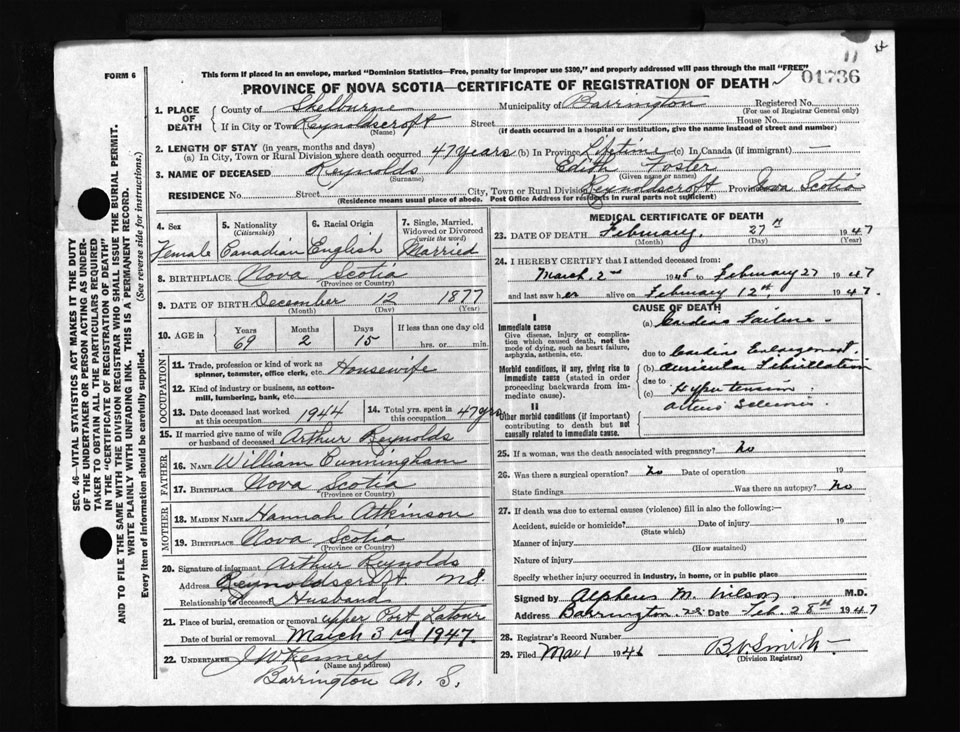 11
FORM 6
This form if placed in an envelope, marked "Dominion Statistics—Free, penalty for improper use $300," and properly addressed will pass through the mail "FREE"
PROVINCE OF NOVA SCOTIA—CERTIFICATE OF REGISTRATION OF DEATH
01736
SEC. 46—VITAL STATISTICS ACT MAKES IT THE DUTY
OF THE UNDERTAKER OR PERSON ACTING AS UNDER-
TAKER TO OBTAIN ALL THE PARTICULARS REQUIRED
IN THE "CERTIFICATE OF REGISTRATION OF DEATH"
AND TO FILE THE SAME WITH THE DIVISION REGISTRAR WHO SHALL ISSUE THE BURIAL PERMIT.
WRITE PLAINLY WITH UNFADING INK. THIS IS A PERMANENT RECORD.
Every item of information should be carefully supplied. (See reverse side for instructions.)
1. PLACE OF DEATH County of Shelburne Municipality of Barrington Registered No.
(For use of Registrar General only)
If in City or Town Reynoldscroft Street House No.
(Name) (if death occurred in a hospital or institution, give the name instead of street and number)
2. LENGTH OF STAY (in years, months and days)
(a) In City, Town or Rural Division where death occurred 47 years (b) In Province Lifetime (c) In Canada (if immigrant) —
3. NAME OF DECEASED Reynolds Edith Foster
(Surname) (Given name or names)
RESIDENCE No. Street City, Town or Rural Division Reynoldscroft Province Nova Scotia
(Residence means usual place of abode. Post Office Address for residents in rural parts not sufficient)
4. Sex 5. Nationality (Citizenship) 6. Racial Origin 7. Single, Married, Widowed or Divorced (write the word)
Female Canadian English Married
8. BIRTHPLACE Nova Scotia
(Province or Country)
9. DATE OF BIRTH December 12 1877
(Month) (Day) (Year)
10. AGE in Years Months Days If less than one day old
69 2 15 hrs. or min.
OCCUPATION
11. Trade, profession or kind of work as spinner, teamster, office clerk, etc. Housewife
12. Kind of industry or business, as cotton-mill, lumbering, bank, etc.
13. Date deceased last worked at this occupation 1944 14. Total yrs. spent in this occupation 47 yrs
15. If married give name of wife or husband of deceased Arthur Reynolds
FATHER
16. NAME William Cunningham
17. BIRTHPLACE Nova Scotia
(Province or Country)
MOTHER
18. MAIDEN NAME Hannah Atkinson
19. BIRTHPLACE Nova Scotia
(Province or Country)
20. Signature of informant Arthur Reynolds
Address Reynoldscroft. N.S.
Relationship to deceased Husband
21. Place of burial, cremation or removal upper Port Latour
Date of burial or removal March 3rd 1947.
22. UNDERTAKER J W Kenney
(Name and address)
Barrington N. S.
MEDICAL CERTIFICATE OF DEATH
23. DATE OF DEATH February. 27th 1947
(Month) (Day) (Year)
24. I HEREBY CERTIFY that I attended deceased from:
March 2nd 1945 to February 27 1947
and last saw her alive on February 12th, 1947.
CAUSE OF DEATH
I
Immediate cause
Give disease, injury or complication which caused death, not the mode of dying, such as heart failure, asphyxia, asthenia, etc.
(a) Cardiac Failure -
due to Cardiac Enlargement.
Morbid conditions, if any, giving rise to immediate cause (stated in order proceeding backwards from immediate cause).
(b) auricular Fibrillation
due to
(c) Hypertension.
II
Other morbid conditions (if important) contributing to death but not causally related to immediate cause.
25. If a woman, was the death associated with pregnancy? no
26. Was there a surgical operation? No Date of operation 19
State findings Was there an autopsy? No
27. If death was due to external causes (violence) fill in also the following:—
Accident, suicide or homicide? Date of injury 19
(State which)
Manner of injury
(How sustained)
Nature of injury
Specify whether injury occurred in industry, in home, or in public place
Signed by Alpheus M. Wilson M.D.
Address Barrington N.S. Date Feb. 28th 1947
28. Registrar's Record Number
29. Filed Mar 1 1946 B.V. Smith -
(Division Registrar)